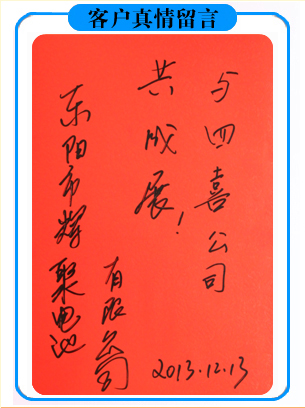 客户真情留言
与四喜公司
共成展!
东阳市辉聚电池
有限公司
2013.12.13